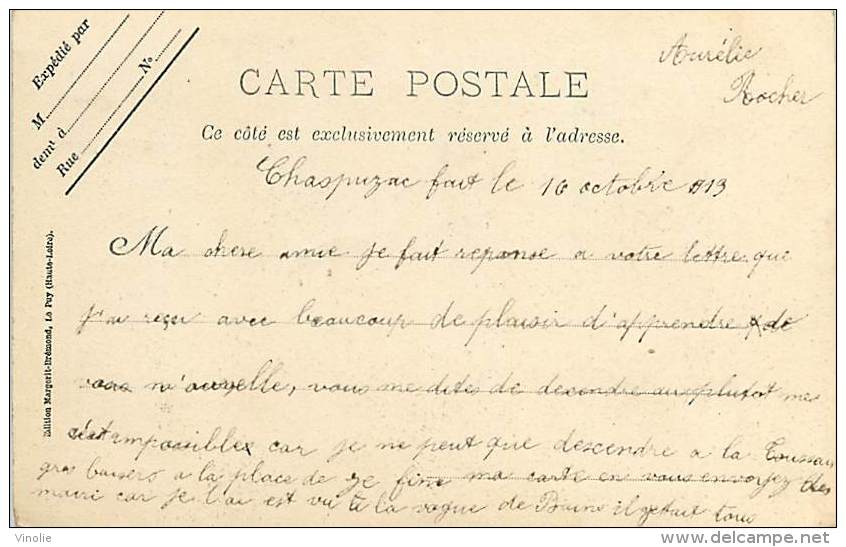 Expédié par
M
demt d
Rue Nº
CARTE POSTALE
Ce côté est exclusivement réservé à l'adresse.
Aurélie
Rocher
Chaspuzac fait le 10 octobre 1913
Ma chere amie je fait reponse a votre lettre que
j'ai reçu avec beaucoup de plaisir d'apprendre de
vous n'ouvelle, vous me dites de decendre au plutot mes
s'est impossible car je ne peut que descendre a la Toussain
gros baisers a la place de je fini ma carte en vous envoyez des
maire car je l'ai est vu à la vogue de Bains il getait tous
Edition Margerit-Brémond, Le Puy (Haute-Loire).
Vinolie
delcampe.net